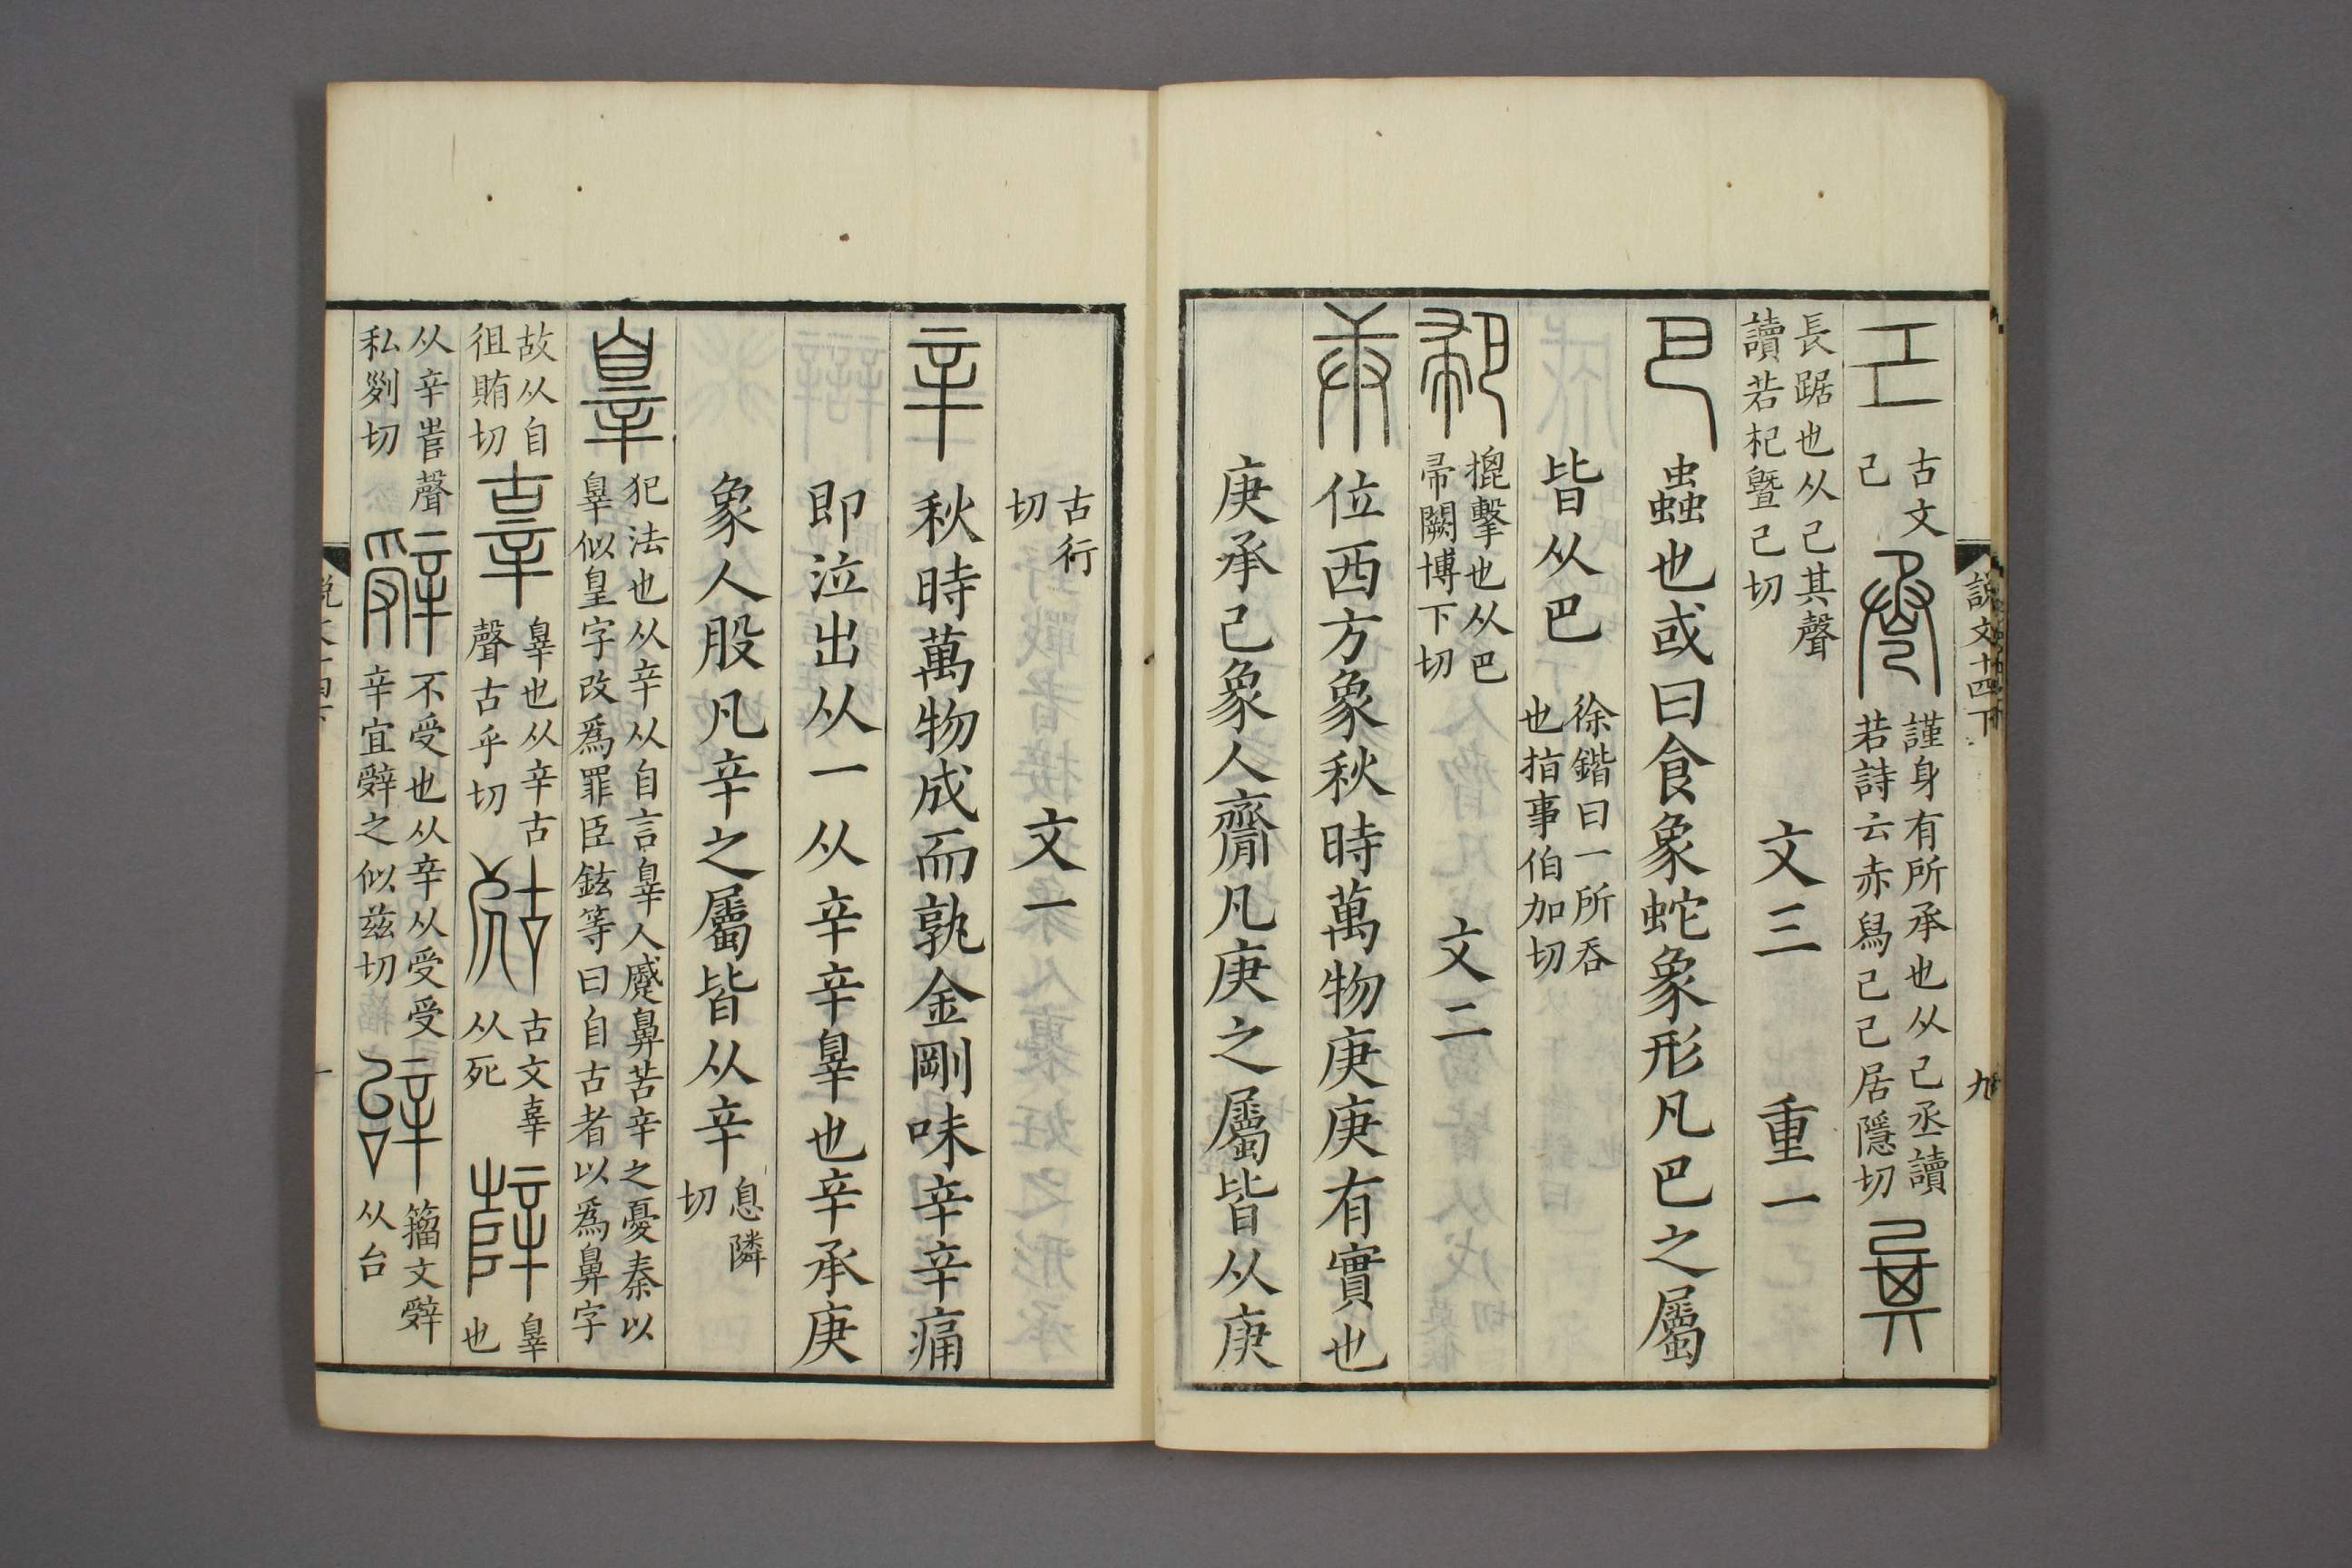 説文十四下
九
古文
己
謹身有所承也从己丞讀
若詩云赤舄己己居隱切
長踞也从己其聲
讀若杞曁己切
文三 重一
巳 蟲也或曰食象蛇象形凡巴之屬
皆从巴
徐鍇曰一所吞
也指事伯加切
㧪擊也从巴
帚闕博下切
文二
庚 位西方象秋時萬物庚庚有實也
庚承己象人齎凡庚之屬皆从庚
古行
切
文一
辛 秋時萬物成而孰金剛味辛辛痛
即泣出从一从辛辛辠也辛承庚
象人股凡辛之屬皆从辛
息隣
切
辠
犯法也从辛从自言辠人蹙鼻苦辛之憂秦以
辠似皇字改爲罪臣鉉等曰自古者以爲鼻字
故从自
徂賄切
辜
辠也从辛古
聲古乎切
古文辜
从死
辠
也
从辛𡴎聲
私列切
辤
不受也从辛从受受
辛宜辤之似兹切
辝
籀文辤
从台